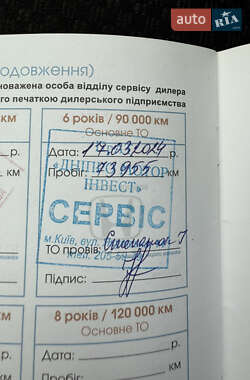 AUTO RIA.com
ОДОВЖЕННЯ)
новажена особа відділу сервісу дилера
го печаткою дилерського підприємства
км
6 років / 90 000 км
Основне ТО
р.
Дата: 17.03.2014 р.
км
Пробіг: 73955 км
ІНВЕСТ»
СЕРВІС
м.Київ, вул.
ТО провів:
Тел. 205-
Підпис:
км
8 років / 120 000 км
Основне ТО
р.
Дата: р.
км
Пробіг: км